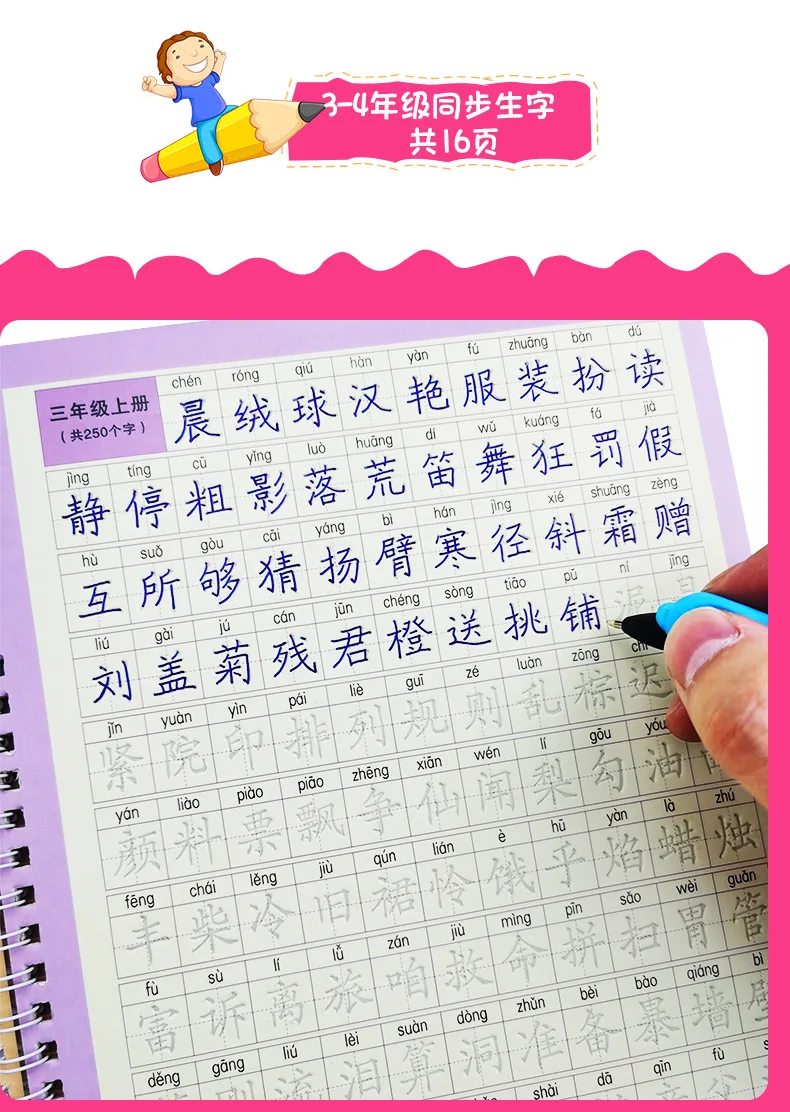 3-4年级同步生字
共16页
chén róng qiú hàn yàn fú zhuāng bàn dú
三年级上册
（共250个字）
晨 绒 球 汉 艳 服 装 扮 读
jìng tíng cū yǐng luò huāng dí wǔ kuáng fá jià
静 停 粗 影 落 荒 笛 舞 狂 罚 假
hù suǒ gòu cāi yáng bì hán jìng xié shuāng zèng
互 所 够 猜 扬 臂 寒 径 斜 霜 赠
liú gài jú cán jūn chéng sòng tiāo pū ní jīng
刘 盖 菊 残 君 橙 送 挑 铺 泥 晶
jǐn yuàn yìn pái liè guī zé luàn zōng
紧 院 印 排 列 规 则 乱 棕 迟
yán liào piào piāo zhēng xiān wén lí gōu yóu
颜 料 票 飘 争 仙 闻 梨 勾 油
fēng chái lěng jiù qún lián è hū yàn là zhú
丰 柴 冷 旧 裙 怜 饿 乎 焰 蜡 烛
fù sù lí lǚ zán jiù mìng pīn sǎo wèi guǎn
富 诉 离 旅 咱 救 命 拼 扫 胃 管
děng gāng liú lèi suàn dòng zhǔn bèi bào qiáng bì
等 刚 流 泪 算 洞 准 备 暴 墙 壁
shài dā qīn fù